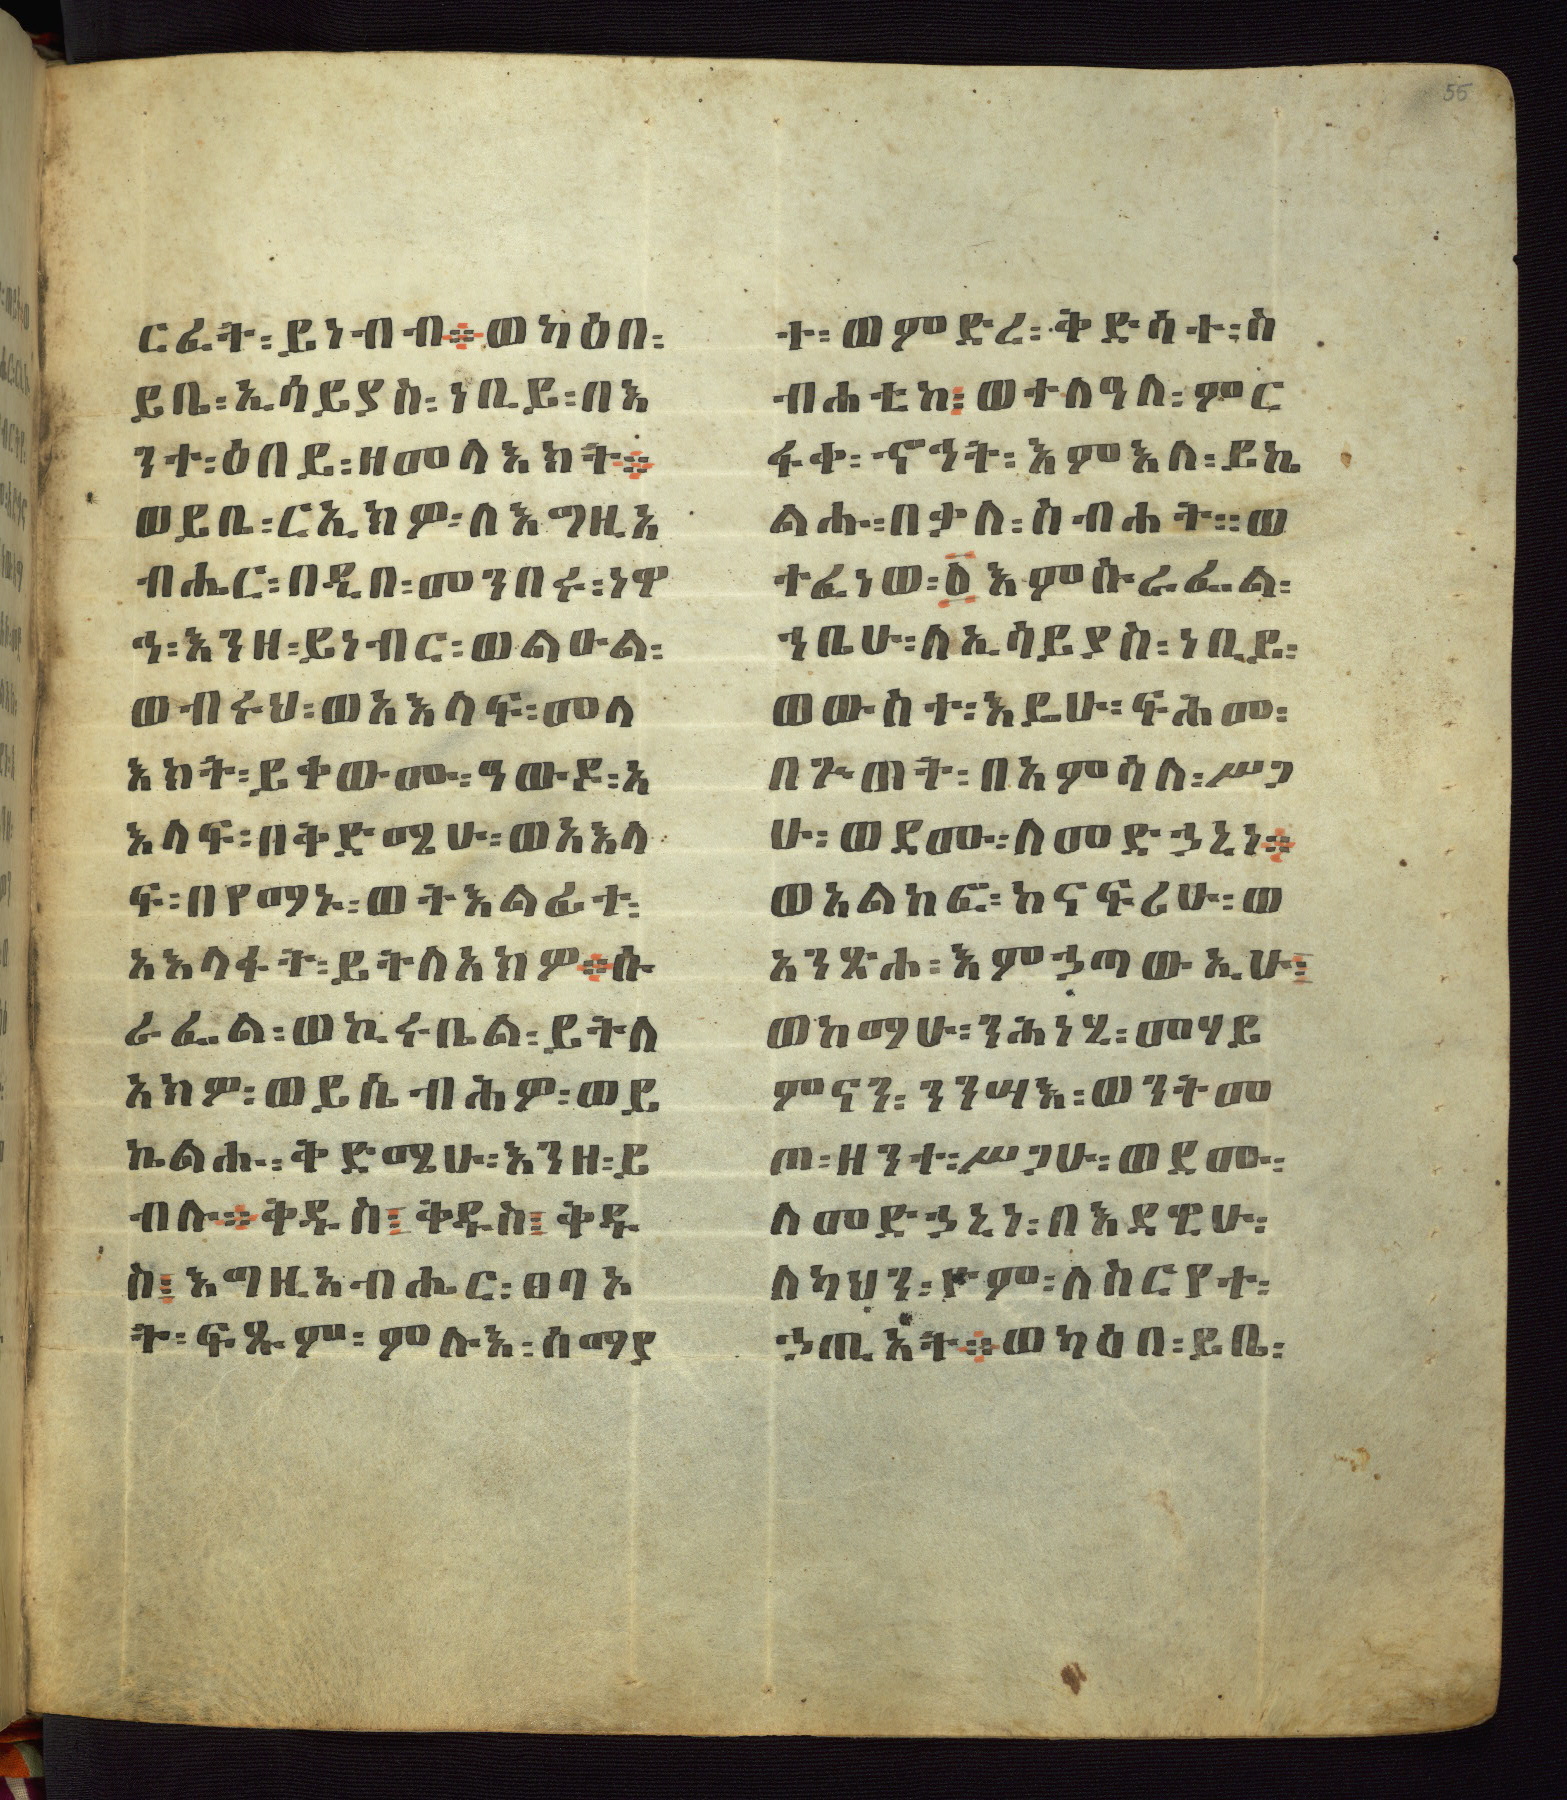 55
ርፈት፡ይነብብ፨ወካዕበ፡
ይቤ፡ኢሳይያስ፡ነቢይ፡በእ
ንተ፡ዕበይ፡ዘመላእክት፨
ወይቤ፡ርኢክዎ፡ለእግዚአ
ብሔር፡በዲበ፡መንበሩ፡ነዋ
ኅ፡እንዘ፡ይነብር፡ወልዑል፡
ወብሩህ፡ወአእላፍ፡መላ
እክት፡ይቀውሙ፡ዓውዶ፡አ
እላፍ፡በቅድሜሁ፡ወአእላ
ፍ፡በየማኑ፡ወትእልፊተ፡
አእላፋት፡ይትለአክዎ፨ሱ
ራፌል፡ወኪሩቤል፡ይትለ
አክዎ፡ወይሴብሕዎ፡ወይ
ኬልሑ፡ቅድሜሁ፡እንዘ፡ይ
ብሉ፨ቅዱስ፤ቅዱስ፤ቅዱ
ስ፤እግዚአብሔር፡ፀባኦ
ት፡ፍጹም፡ምሉእ፡ሰማያ
ተ፡ወምድረ፡ቅድሳተ፡ስ
ብሐቲከ፤ወተለዓለ፡ምር
ፋቀ፡ኆኅት፡እምእለ፡ይኬ
ልሑ፡በቃለ፡ስብሐት።ወ
ተፈነወ፡፩እምሱራፌል፡
ኀቤሁ፡ለኢሳይያስ፡ነቢይ፡
ወውስተ፡እዴሁ፡ፍሕመ፡
በጕጠት፡በአምሳለ፡ሥጋ
ሁ፡ወደሙ፡ለመድኃኒነ፨
ወአልከፎ፡ከናፍሪሁ፡ወ
አንጽሐ፡እምኃጣውኢሁ፤
ወከማሁ፡ንሕነሂ፡መሃይ
ምናን፡ንንሣእ፡ወንትመ
ጦ፡ዘንተ፡ሥጋሁ፡ወደሙ፡
ለመድኃኒነ፡በእደዊሁ፡
ለካህን፡ዮም፡ለስርየተ፡
ኃጢአት፨ወካዕበ፡ይቤ፡